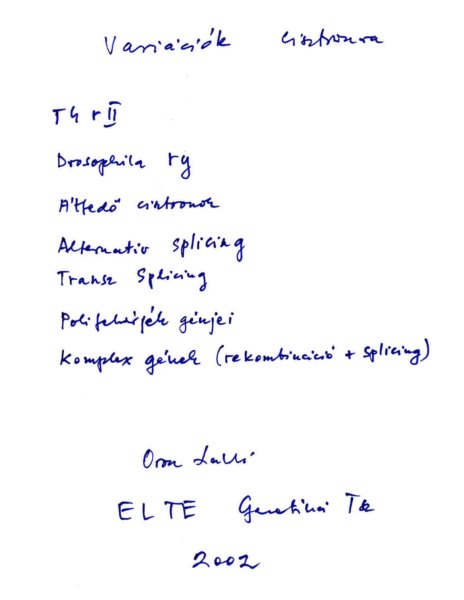 Variációk cisztronra
T4 r II
Drosophila ry
Átfedő cisztronok
Alternatív splicing
Transz Splicing
Polifehérjék génjei
Komplex gének (rekombináció + splicing)
Orosz László
ELTE Genetikai Tsz
2002